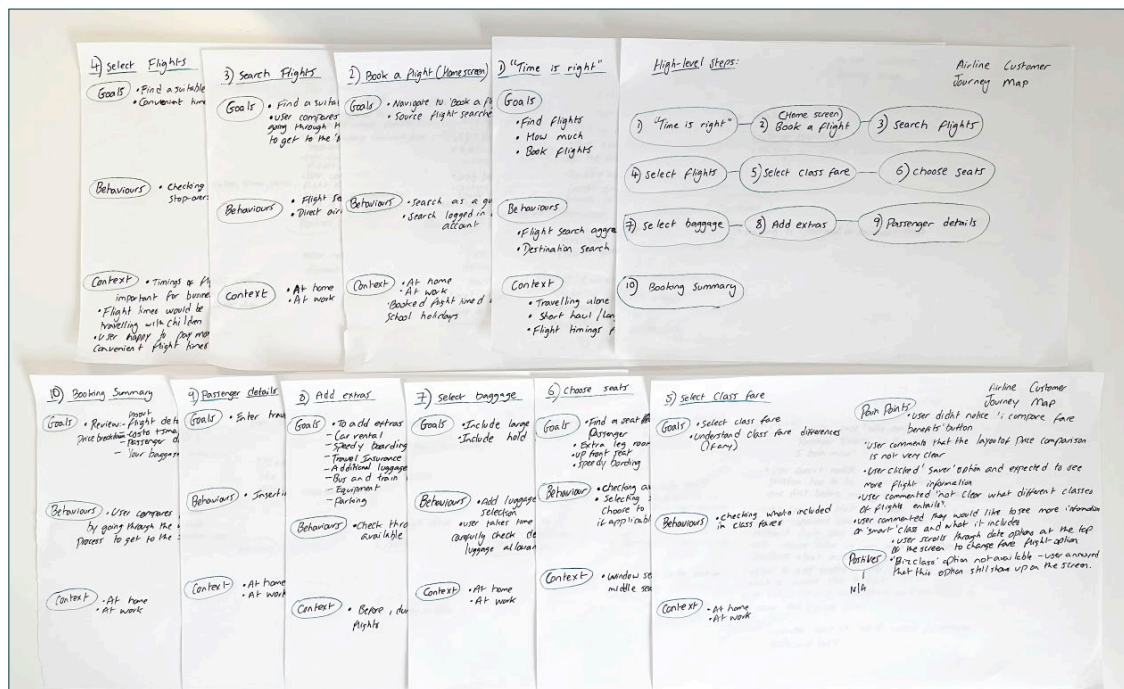 4) Select Flights
Goals • Find a suitable
• Convenient time
Behaviours • Checking
stop-over
Context • Timings of
important for
• Flight times would be
travelling with children
• User happy to pay
convenient flight times
3) Search Flights
Goals • Find a
• User compares
going through
to get to the
Behaviours • Flight
• Direct
Context • At home
• At work
2) Book a flight (Homescreen)
Goals • Navigate to 'Book a
• Source flight
Behaviours • Search as a
• Search logged in
account
Context • At home
• At work
Booked flight
school holidays
1) "Time is right"
Goals
• Find flights
• How much
• Book flights
Behaviours
• Flight search
• Destination search
Context
• Travelling alone
• Short haul /
• Flight timings
High-level steps:
Airline Customer
Journey Map
1) "Time is right"
(Home screen)
2) Book a flight
3) Search flights
4) Select flights
5) Select class fare
6) Choose seats
7) Select baggage
8) Add extras
9) Passenger details
10) Booking Summary
10) Booking Summary
Goals • Review:-
- Flight
Price breakdown - costs
- Passenger
- Your baggage
Behaviours • User compares
by going through the
process to get to the
Context • At home
• At work
9) Passenger details
Goals • Enter
Behaviours •
Context • At home
• At work
8) Add extras
Goals • To add extras
- Car rental
- Speedy boarding
- Travel Insurance
- Additional luggage
- Bus and train
- Equipment
- Parking
Behaviours • Check
available
Context • Before,
flights
7) Select baggage
Goals • Include large
• Include hold
Behaviours • Add luggage
selection
• User takes time
carefully check
luggage
Context • At home
• At work
6) Choose seats
Goals • Find a seat
Passenger
• Extra leg room
• Up front seat
• speedy bording
Behaviour • Checking
• Selecting
choose to
if
Context • Window
middle
5) Select class fare
Airline Customer
Journey Map
Goals • Select class fare
• Understand class fare differences
(if any)
Behaviours • Checking what's included
in class fares
Context • At home
• At work
Pain Points
• User didn't notice 'i compare fare
benefits' button
• User comments that the layout of price comparison
is not very clear
• User clicked 'Saver' option and expected to see
more flight information
• User commented 'not clear what different classes
of flights entails'.
• User commented they would like to see more information
on 'smart' class and what it includes
• User scrolls through date options at the top
of the screen to change fare flight option
• 'Biz class' option not available - user annoyed
that this option still shows up on the screen.
Positives
N/A